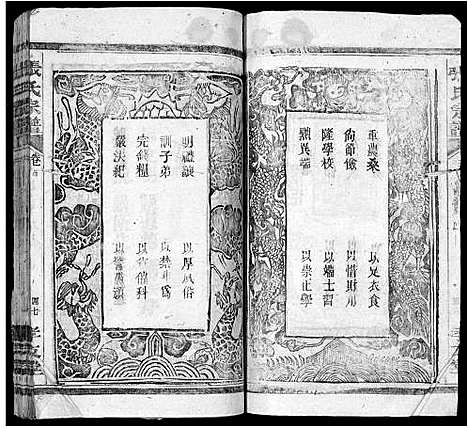 重農桑 以足衣食
尚節儉 以惜財用
隆學校 以端士習
黜異端 以崇正學
明禮讓 以厚風俗
訓子弟 以禁非為
完錢糧 以省催科
嚴法紀 以警頑
張氏宗譜
卷首